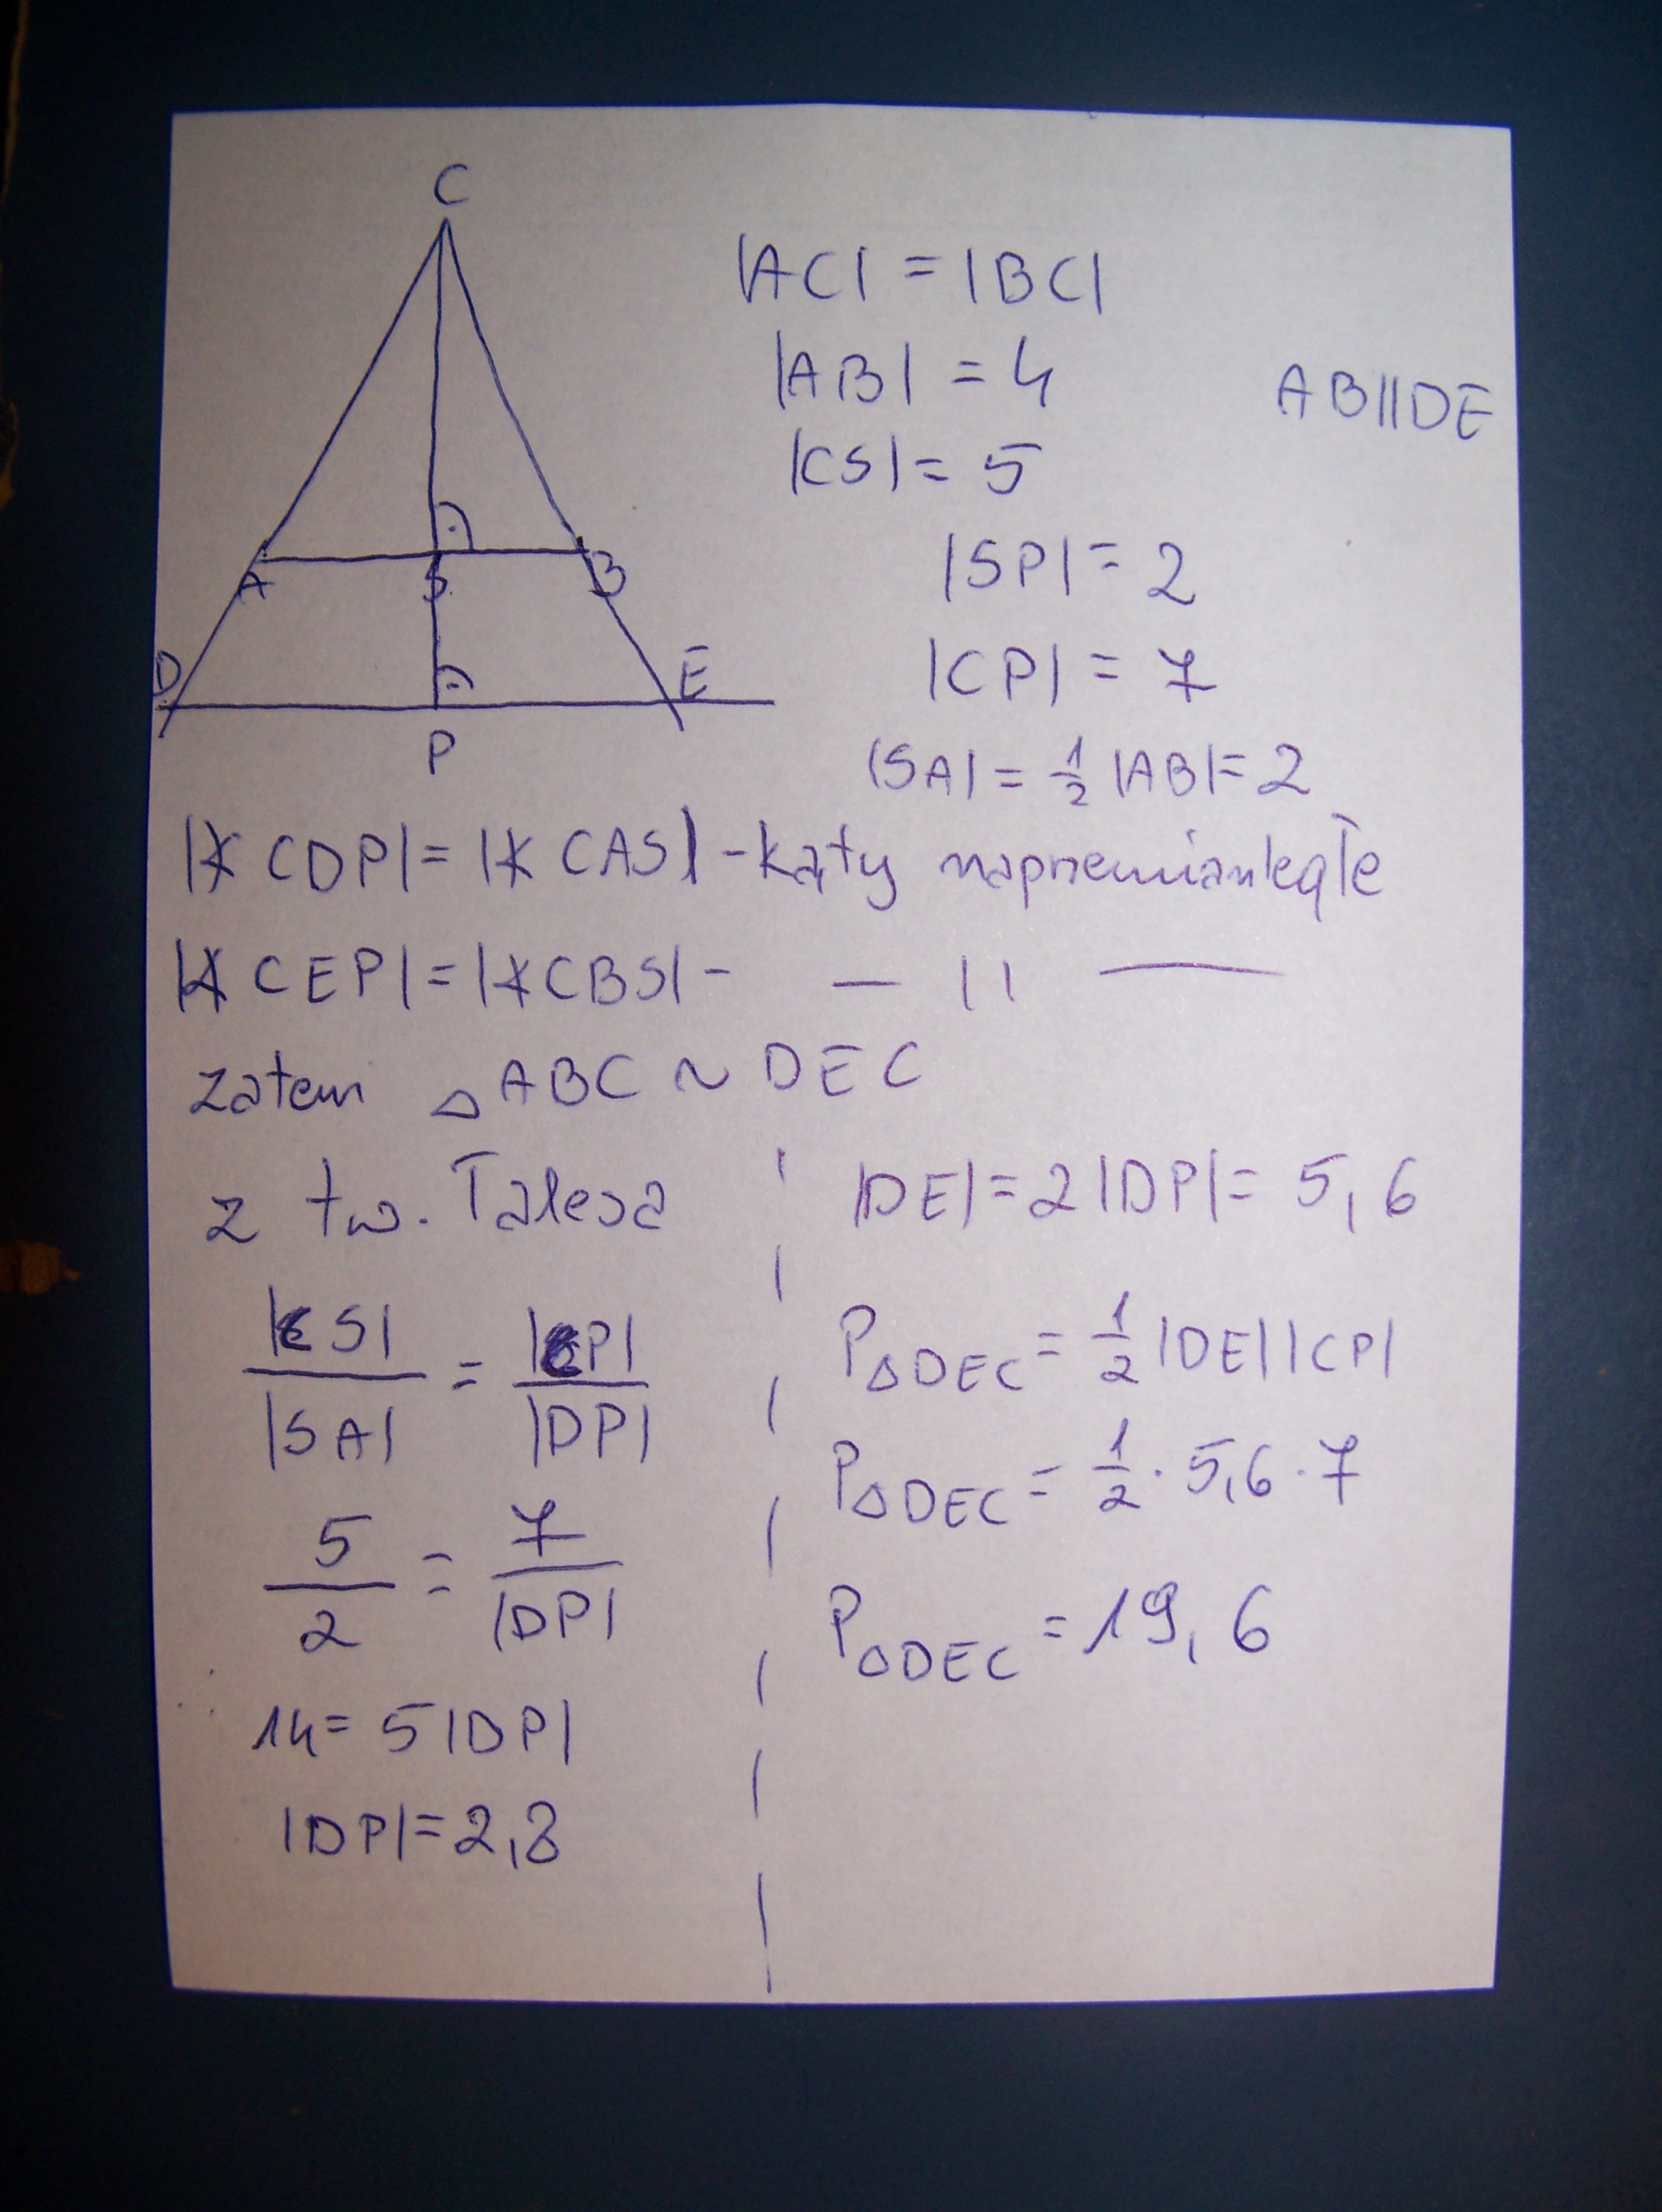 C
|AC| = |BC|
|AB| = 4
AB||DE
|CS| = 5
|SP| = 2
A S B
D E
|CP| = 7
P
|SA| = 1/2 |AB| = 2
|∢ CDP| = |∢ CAS| - kąty naprzemianległe
|∢ CEP| = |∢ CBS| - — || —
zatem △ABC ~ DEC
z tw. Talesa
|CS|/|SA| = |CP|/|DP|
5/2 = 7/|DP|
14 = 5|DP|
|DP| = 2,8
|DE| = 2|DP| = 5,6
P△DEC = 1/2 |DE||CP|
P△DEC = 1/2 · 5,6 · 7
P△DEC = 19,6